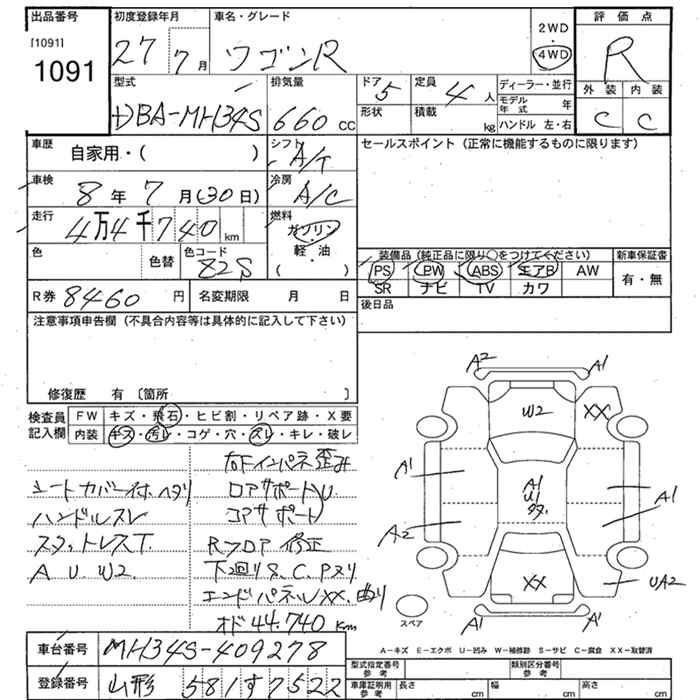 出品番号
[1091]
1091
初度登録年月
27 7月
車名・グレード
ワゴンR
2WD
4WD
評価点
R
外装 内装
C C
型式
DBA-MH34S
排気量
660 cc
ドア
5
形状
定員
4人
積載
kg
ディーラー・並行
モデル年式 年
ハンドル 左・右
車歴
自家用・( )
シフト
A/T
セールスポイント(正常に機能するものに限ります)
車検
8年 7月(30日)
冷房
A/C
走行
4万4千740 km
燃料
ガソリン
軽・油
( )
色
色替
色コード
Z2S
装備品(純正品に限り○をつけてください)
新車保証書
PS PW ABS エアB AW
SR ナビ TV カワ
有・無
R券 8460円
名変期限 月 日
後日品
注意事項申告欄(不具合内容等は具体的に記入して下さい)
修復歴 有〔箇所 〕
検査員記入欄
FW キズ・飛石・ヒビ割・リペア跡・X要
内装 キズ・汚レ・コゲ・穴・スレ・キレ・破レ
右Fインパネ歪み
シートカバー付、ヘタリ
ロアサポートU
ハンドルスレ
コアサポート
スタットレスT.
Rフロア 修正
A U. W2
下廻りS、C、Pスリ
エンドパネルXX、曲り
オド44.740km
A2
A1
W2
XX
A1
A1
U1
A1
A2
XX
UA2
A1
A1
スペア
A-キズ E-エクボ U-凹み W-補修跡 S-サビ C-腐食 XX-取替済
車台番号
MH34S-409278
登録番号
山形 581す7522
型式指定番号 参考
類別区分番号 参考
車庫証明用 参考
長さ cm
幅 cm
高さ cm